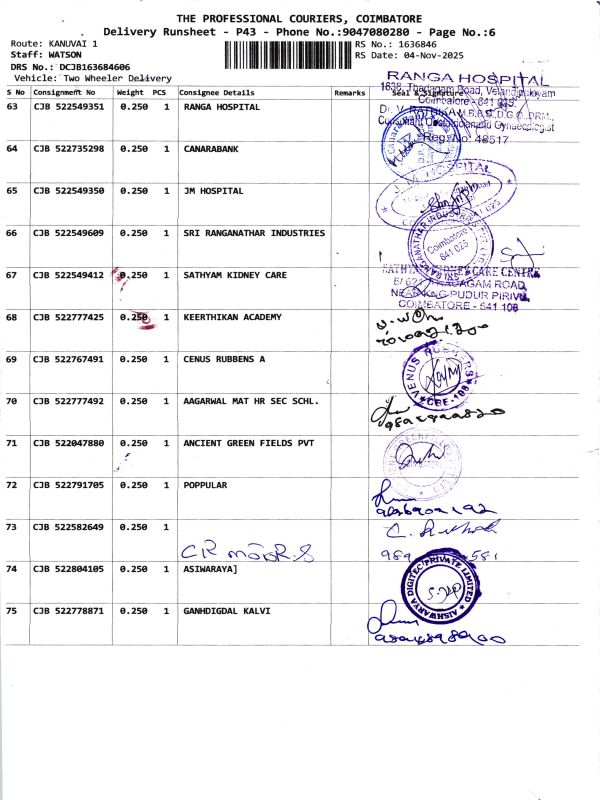 THE PROFESSIONAL COURIERS, COIMBATORE
Delivery Runsheet - P43 - Phone No.:9047080280 - Page No.:6
Route: KANUVAI 1
RS No.: 1636846
Staff: WATSON
RS Date: 04-Nov-2025
DRS No.: DCJB163684606
Vehicle: Two Wheeler Delivery
S No Consignment No Weight PCS Consignee Details Remarks Seal & Signature
RANGA HOSPITAL
1638, Thadagam Road, Velandipalayam
Coimbatore - 641 025.
Consultant Obstetrician and Gynaecologist
Reg. No: 48517
63 CJB 522549351 0.250 1 RANGA HOSPITAL
64 CJB 522735298 0.250 1 CANARABANK
65 CJB 522549350 0.250 1 JM HOSPITAL
66 CJB 522549609 0.250 1 SRI RANGANATHAR INDUSTRIES
SRI RANGANATHAR INDUSTRIES
Coimbatore
641 025
67 CJB 522549412 0.250 1 SATHYAM KIDNEY CARE
SATHYAM KIDNEY CARE CENTRE
NEAR KNG PUDUR PIRIVU,
COIMBATORE - 641 108
68 CJB 522777425 0.250 1 KEERTHIKAN ACADEMY
69 CJB 522767491 0.250 1 CENUS RUBBENS A
VENUS RUBBERS
CBE-108
70 CJB 522777492 0.250 1 AAGARWAL MAT HR SEC SCHL.
71 CJB 522047880 0.250 1 ANCIENT GREEN FIELDS PVT
72 CJB 522791705 0.250 1 POPPULAR
73 CJB 522582649 0.250 1
CR MOTORS
74 CJB 522804105 0.250 1 ASIWARAYA]
AISHWARYA DIGITEC PRIVATE LIMITED
75 CJB 522778871 0.250 1 GANHDIGDAL KALVI